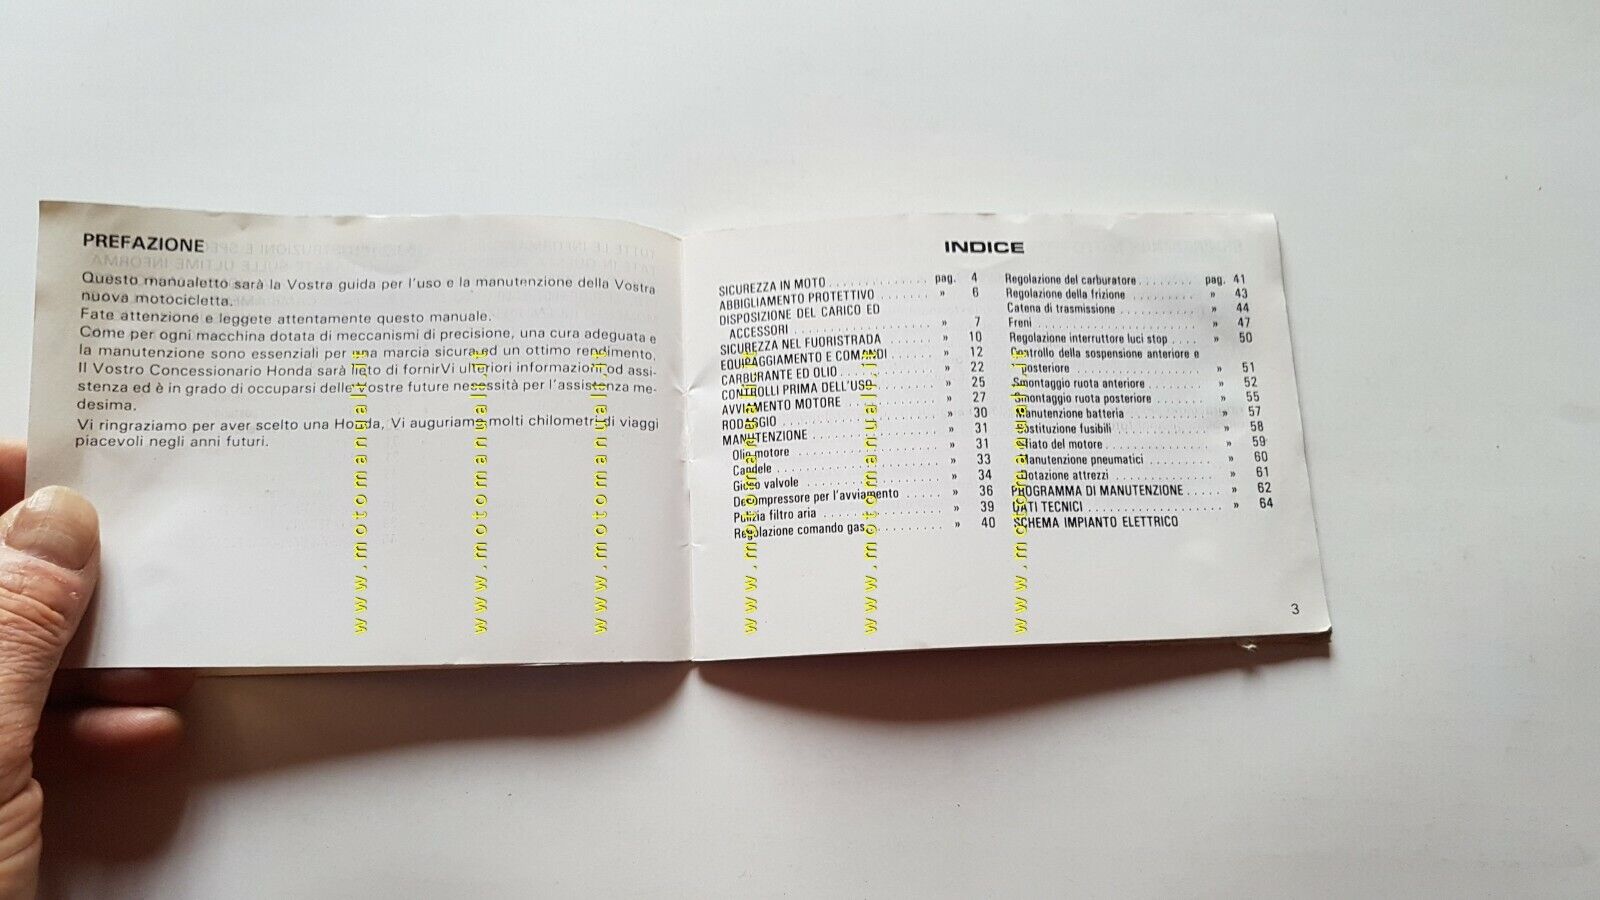 PREFAZIONE
Questo manualetto sarà la Vostra guida per l'uso e la manutenzione della Vostra
nuova motocicletta.
Fate attenzione e leggete attentamente questo manuale.
Come per ogni macchina dotata di meccanismi di precisione, una cura adeguata e
la manutenzione sono essenziali per una marcia sicura ed un ottimo rendimento.
Il Vostro Concessionario Honda sarà lieto di fornirVi ulteriori informazioni od assi-
stenza ed è in grado di occuparsi delle Vostre future necessità per l'assistenza me-
desima.
Vi ringraziamo per aver scelto una Honda, Vi auguriamo molti chilometri di viaggi
piacevoli negli anni futuri.
www.motomanuali.it
www.motomanuali.it
www.motomanuali.it
INDICE
SICUREZZA IN MOTO . . . . . . . . . . . . . . . pag. 4
ABBIGLIAMENTO PROTETTIVO . . . . . . . » 6
DISPOSIZIONE DEL CARICO ED
ACCESSORI . . . . . . . . . . . . . . . . . . . . » 7
SICUREZZA NEL FUORISTRADA . . . . . . » 10
EQUIPAGGIAMENTO E COMANDI . . . . . » 12
CARBURANTE ED OLIO . . . . . . . . . . . . . » 22
CONTROLLI PRIMA DELL'USO . . . . . . . » 25
AVVIAMENTO MOTORE . . . . . . . . . . . . . » 27
RODAGGIO . . . . . . . . . . . . . . . . . . . . . . » 30
MANUTENZIONE . . . . . . . . . . . . . . . . . . » 31
Olio motore . . . . . . . . . . . . . . . . . . . . » 31
Candele . . . . . . . . . . . . . . . . . . . . . . . » 33
Gioco valvole . . . . . . . . . . . . . . . . . . » 34
Decompressore per l'avviamento . . . . . . » 36
Pulizia filtro aria . . . . . . . . . . . . . . . . » 39
Regolazione comando gas . . . . . . . . . . » 40
Regolazione del carburatore . . . . . . . . pag. 41
Regolazione della frizione . . . . . . . . . . » 43
Catena di trasmissione . . . . . . . . . . . . » 44
Freni . . . . . . . . . . . . . . . . . . . . . . . . . » 47
Regolazione interruttore luci stop . . . . » 50
Controllo della sospensione anteriore e
posteriore . . . . . . . . . . . . . . . . . . . . » 51
Smontaggio ruota anteriore . . . . . . . . . » 52
Smontaggio ruota posteriore . . . . . . . . » 55
Manutenzione batteria . . . . . . . . . . . . » 57
Sostituzione fusibili . . . . . . . . . . . . . . » 58
Sfiato del motore . . . . . . . . . . . . . . . . » 59
Manutenzione pneumatici . . . . . . . . . . » 60
Dotazione attrezzi . . . . . . . . . . . . . . . » 61
PROGRAMMA DI MANUTENZIONE . . . . . » 62
DATI TECNICI . . . . . . . . . . . . . . . . . . . . » 64
SCHEMA IMPIANTO ELETTRICO
www.motomanuali.it
www.motomanuali.it
www.motomanuali.it
3